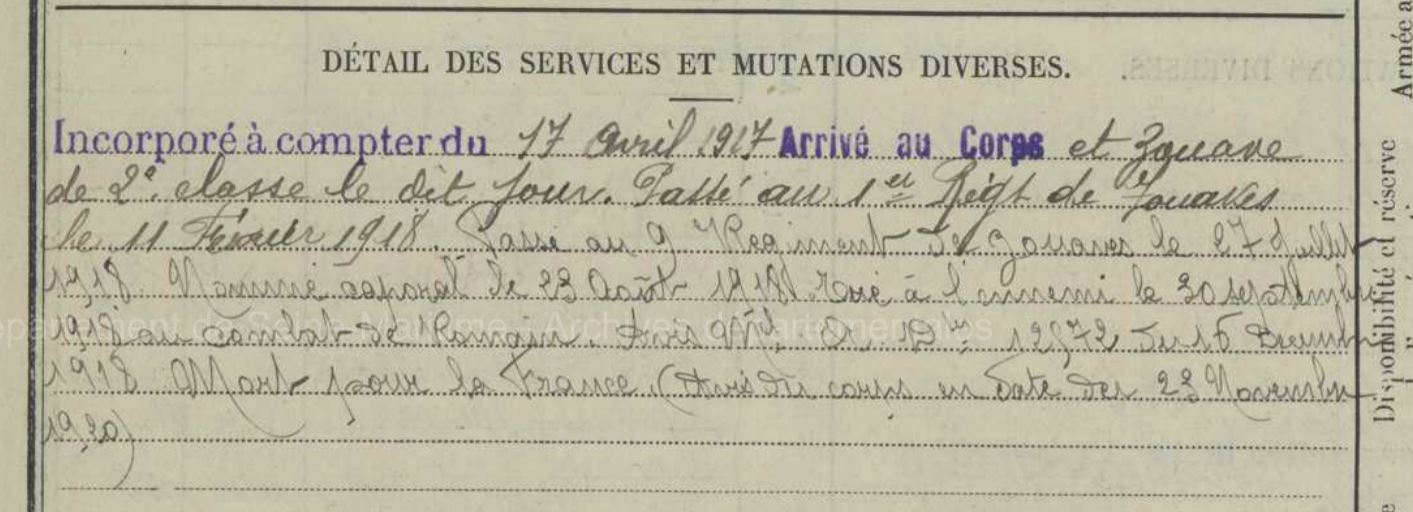 DÉTAIL DES SERVICES ET MUTATIONS DIVERSES.
Incorporé à compter du 17 Avril 1917 Arrivé au Corps et Zouave
de 2e classe le dit jour. Passé au 1er Régt de Zouaves
le 11 Février 1918. Passé au 9 Regiment de Zouaves le 27 Juillet
1918. Nommé caporal le 23 Août 1918. Tué à l'ennemi le 30 septembre
1918 au combat de Romain. Avis Mel 12972 du 15 Decembre
1918 Mort pour la France. (Avis du corps en date du 23 Novembre
1920)
Disponibilité et réserve
Armée a